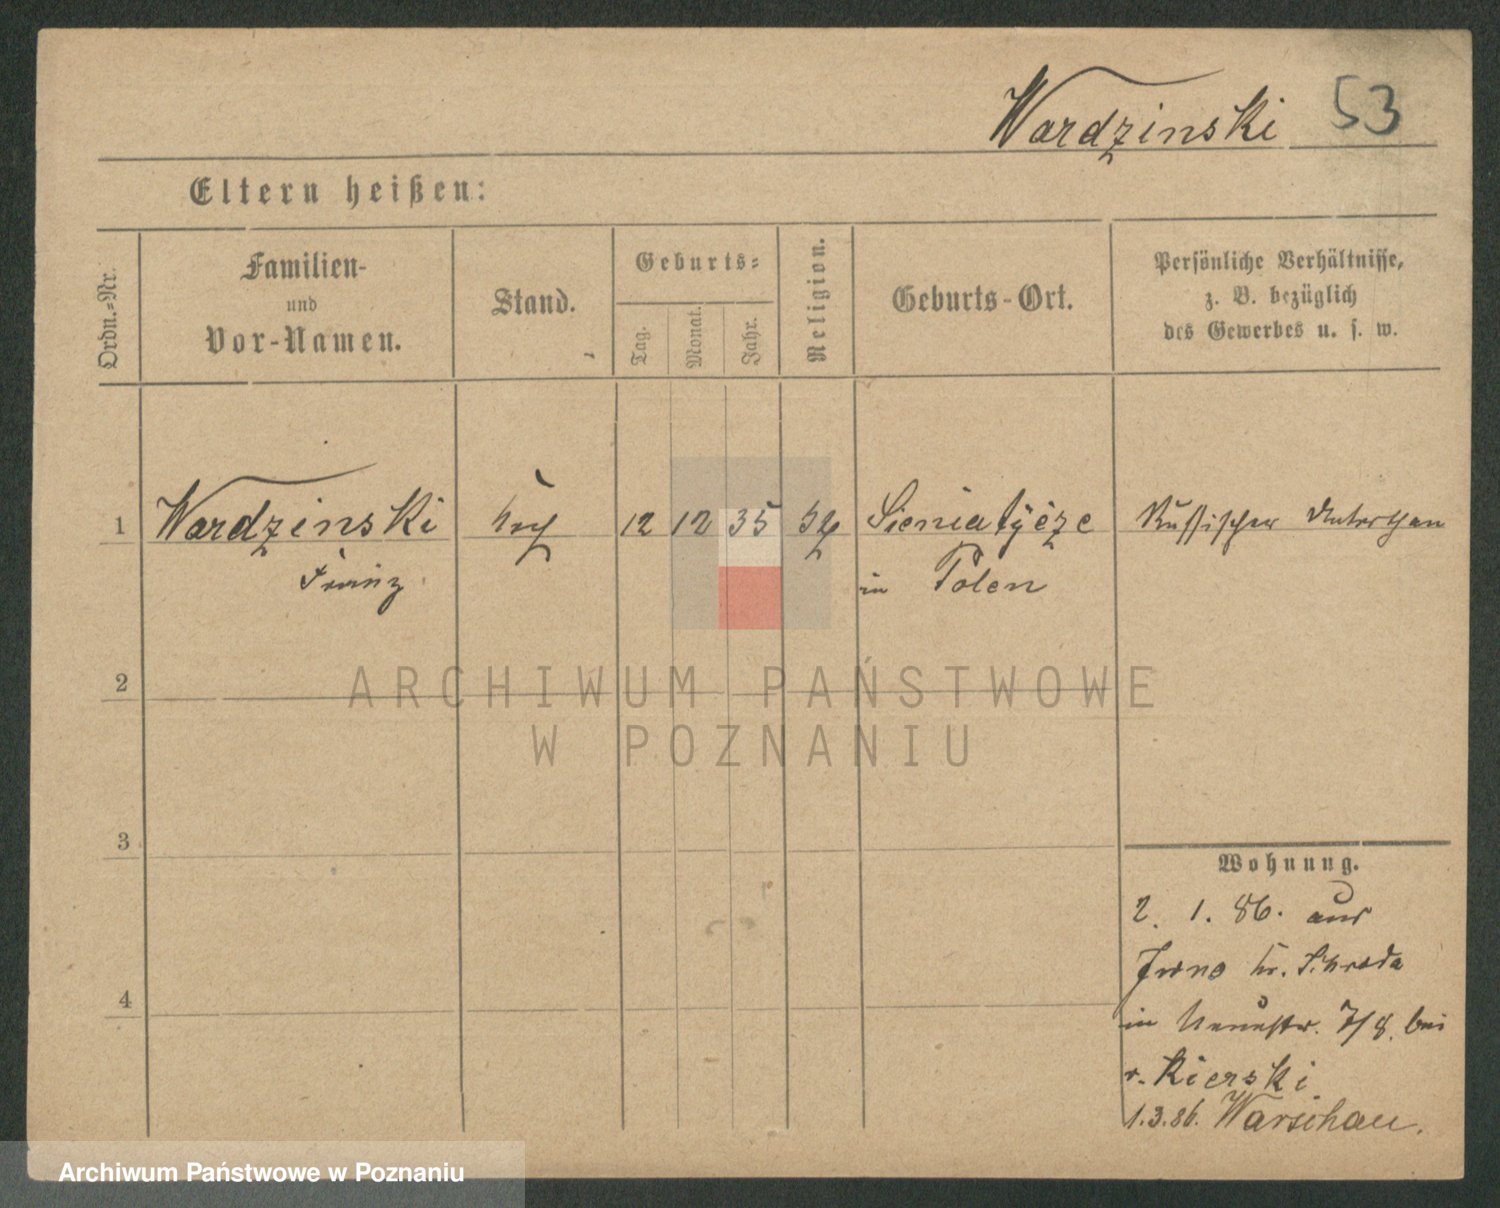 Wardzinski 53
Eltern heißen:
Ordn.-Nr.
Familien-
und
Vor-Namen.
Stand.
Geburts-
Tag.
Monat.
Jahr.
Religion.
Geburts-Ort.
Persönliche Verhältnisse,
z. B. bezüglich
des Gewerbes u. s. w.
1 Wardzinski 12 12 35 Russischer Unterthan
Franz in Polen
2
3
4
Wohnung.
2. 1. 86. aus
Kr. Schroda
in Neuestr. 7/8. bei
v. Kierski
1.3.86. Warschau.
ARCHIWUM PAŃSTWOWE
W POZNANIU
Archiwum Państwowe w Poznaniu